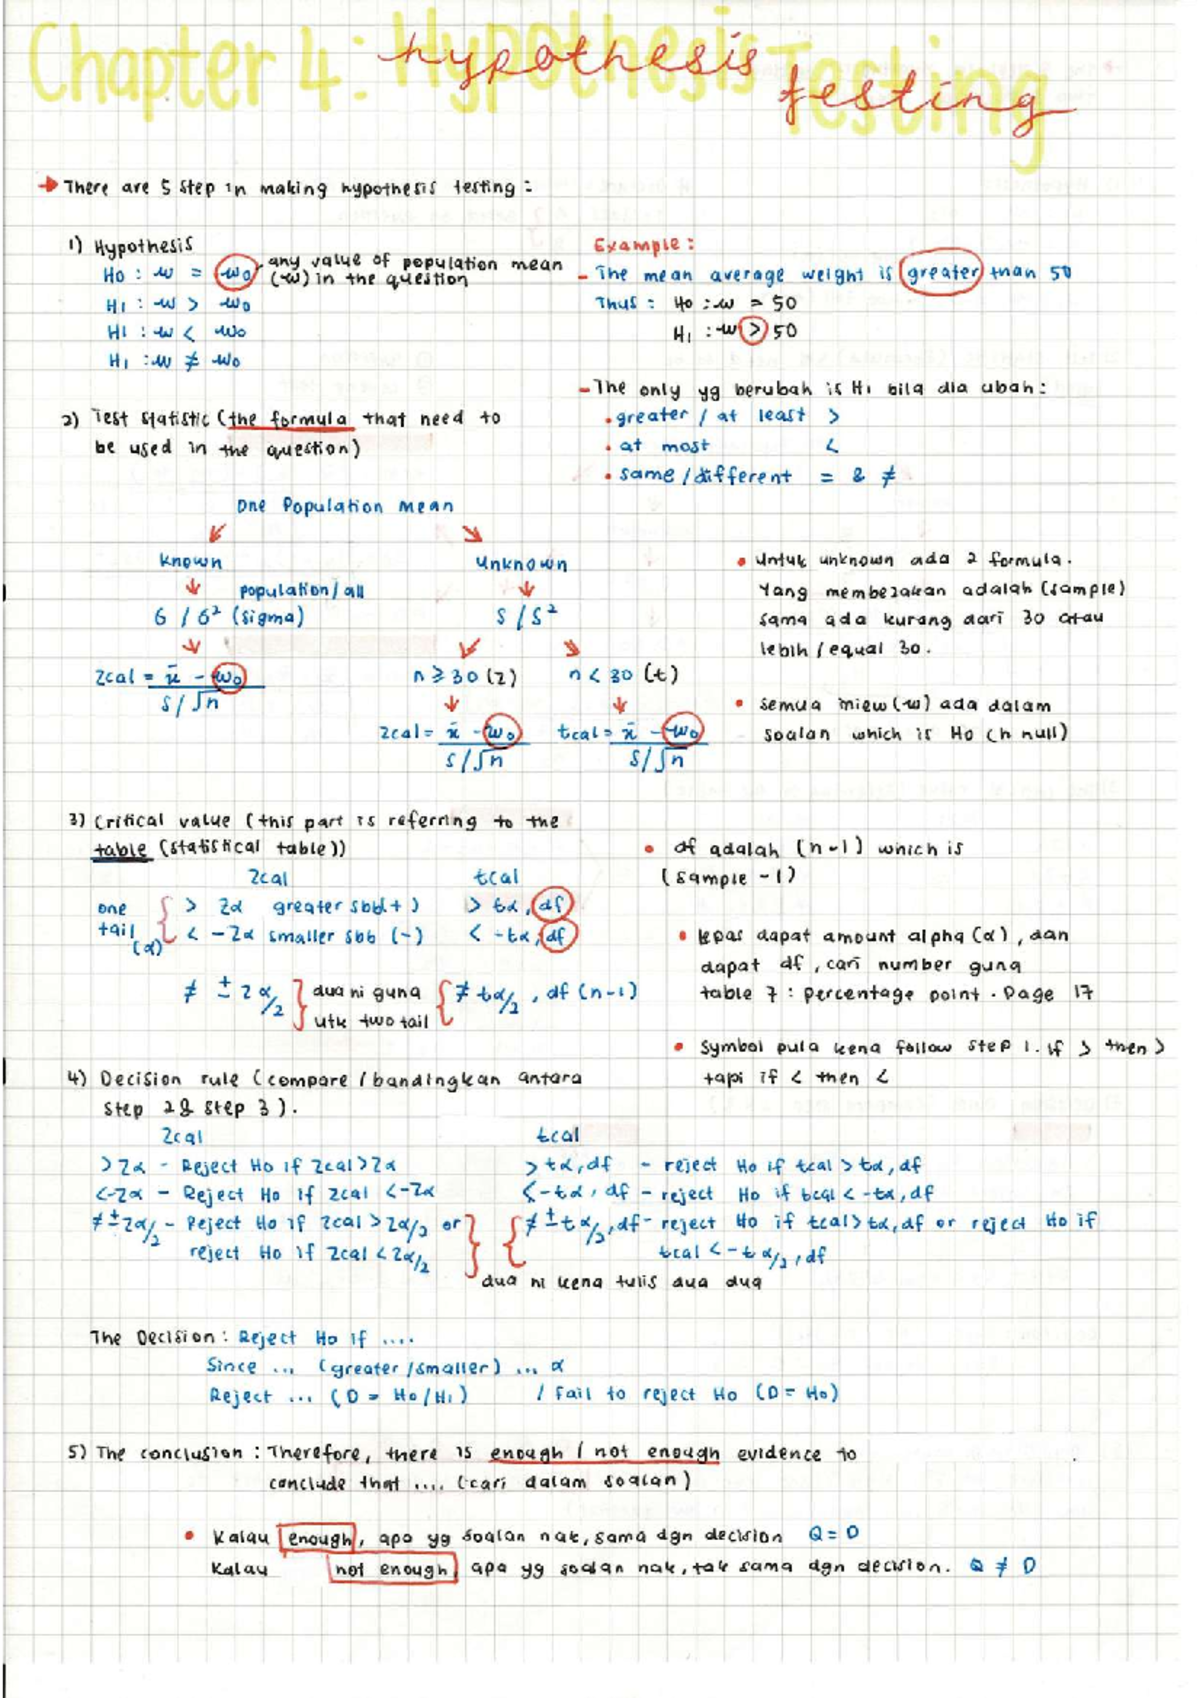 Chapter 4: Hypothesis Testing
hypothesis testing
→ There are 5 step in making hypothesis testing :
1) Hypothesis
Ho : μ = μo any value of population mean (μ) in the question
H1 : μ > μo
H1 : μ < μo
H1 : μ ≠ μo
Example :
- The mean average weight is greater than 50
Thus : Ho : μ = 50
H1 : μ > 50
- The only yg berubah is H1 bila dia ubah :
• greater / at least >
• at most <
• same / different = & ≠
2) Test statistic (the formula that need to
be used in the question)
One Population Mean
Known Unknown
population / all
σ / σ² (sigma) s / s²
zcal = x̄ - μo / s/√n
n ≥ 30 (z) n < 30 (t)
zcal = x̄ - μo / s/√n tcal = x̄ - μo / s/√n
• Untuk unknown ada 2 formula.
Yang membezakan adalah (sample)
sama ada kurang dari 30 atau
lebih / equal 30.
• Semua miew (μ) ada dalam
soalan which is Ho (h null)
3) Critical value (this part is referring to the
table (statistical table))
zcal tcal
one tail (α) { > zα greater sbb (+) > tα, df
< -zα smaller sbb (-) < -tα, df
≠ ± zα/2 } dua ni guna utk two tail { ≠ tα/2 , df (n-1)
• df adalah (n-1) which is
(sample -1)
• lepas dapat amount alpha (α) , dan
dapat df , cari number guna
table 7 : percentage point . Page 17
• Symbol pula kena follow step 1. if > then >
tapi if < then <
4) Decision rule (compare / bandingkan antara
step 2 & step 3 ).
zcal tcal
> zα - Reject Ho if zcal > zα > tα, df - reject Ho if tcal > tα, df
< -zα - Reject Ho if zcal < -zα < -tα, df - reject Ho if tcal < -tα, df
≠ ± zα/2 - Reject Ho if zcal > zα/2 or } { ≠ ± tα/2, df - reject Ho if tcal > tα, df or reject Ho if
reject Ho if zcal < zα/2 tcal < -tα/2, df
dua ni kena tulis dua dua
The Decision : Reject Ho if ....
Since ... (greater / smaller) ... α
Reject ... (D = Ho/H1) / Fail to reject Ho (D = Ho)
5) The conclusion : Therefore, there is enough / not enough evidence to
conclude that .... (cari dalam soalan)
• Kalau enough, apa yg soalan nak, sama dgn decision Q = D
Kalau not enough, apa yg soalan nak, tak sama dgn decision. Q ≠ D